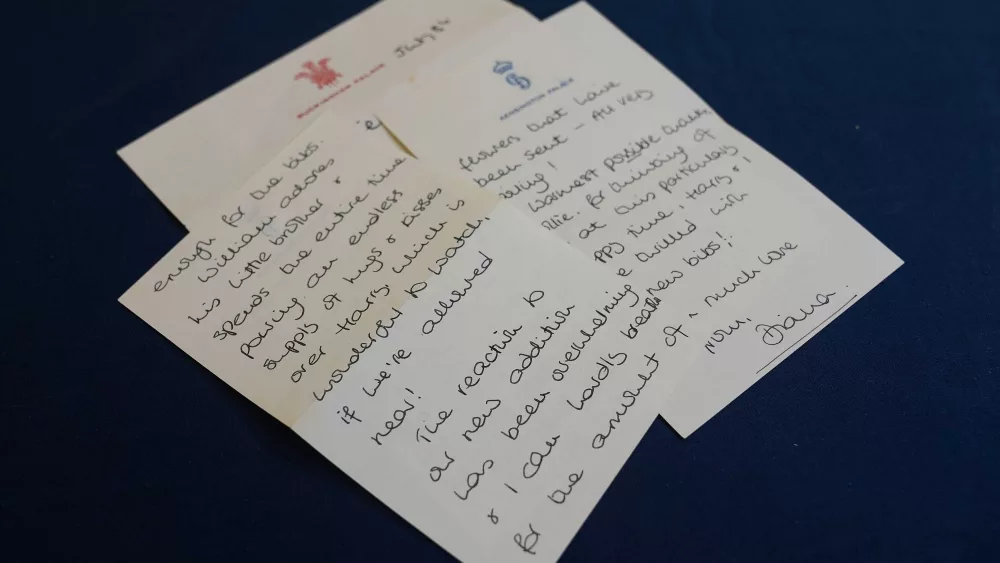 BUCKINGHAM PALACE
enough for the bibs.
William adores
his little brother &
spends the entire time
pouring an endless
supply of hugs & kisses
over Harry, which is
wonderful to watch,
if we're allowed
near!
The reaction to
our new addition
has been overwhelming
& I can hardly breath
for the amount of
KENSINGTON PALACE
flowers that have
been sent - All very
Warmest possible thanks,
for thinking of
at this particularly
time, Harry & I
thrilled with
new bibs!
much love
from,
Diana.